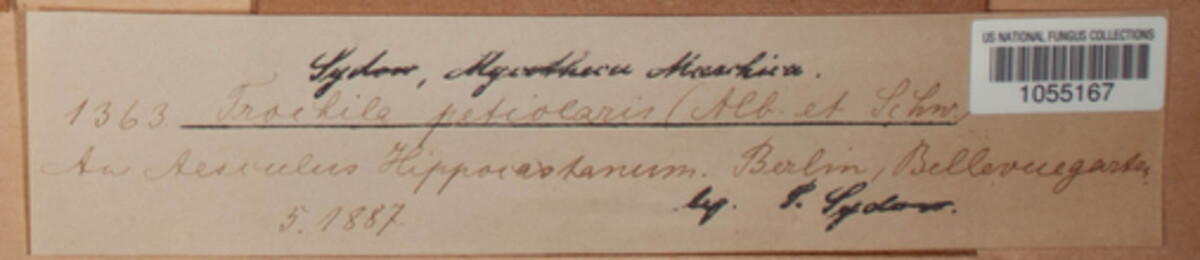 Sydow, Mycotheca Marchica.
US NATIONAL FUNGUS COLLECTIONS
1055167
1363 Trochila petiolaris (Alb. et Schw.)
An Aesculus Hippocastanum. Berlin, Bellevuegarten
5. 1887 leg. P. Sydow.